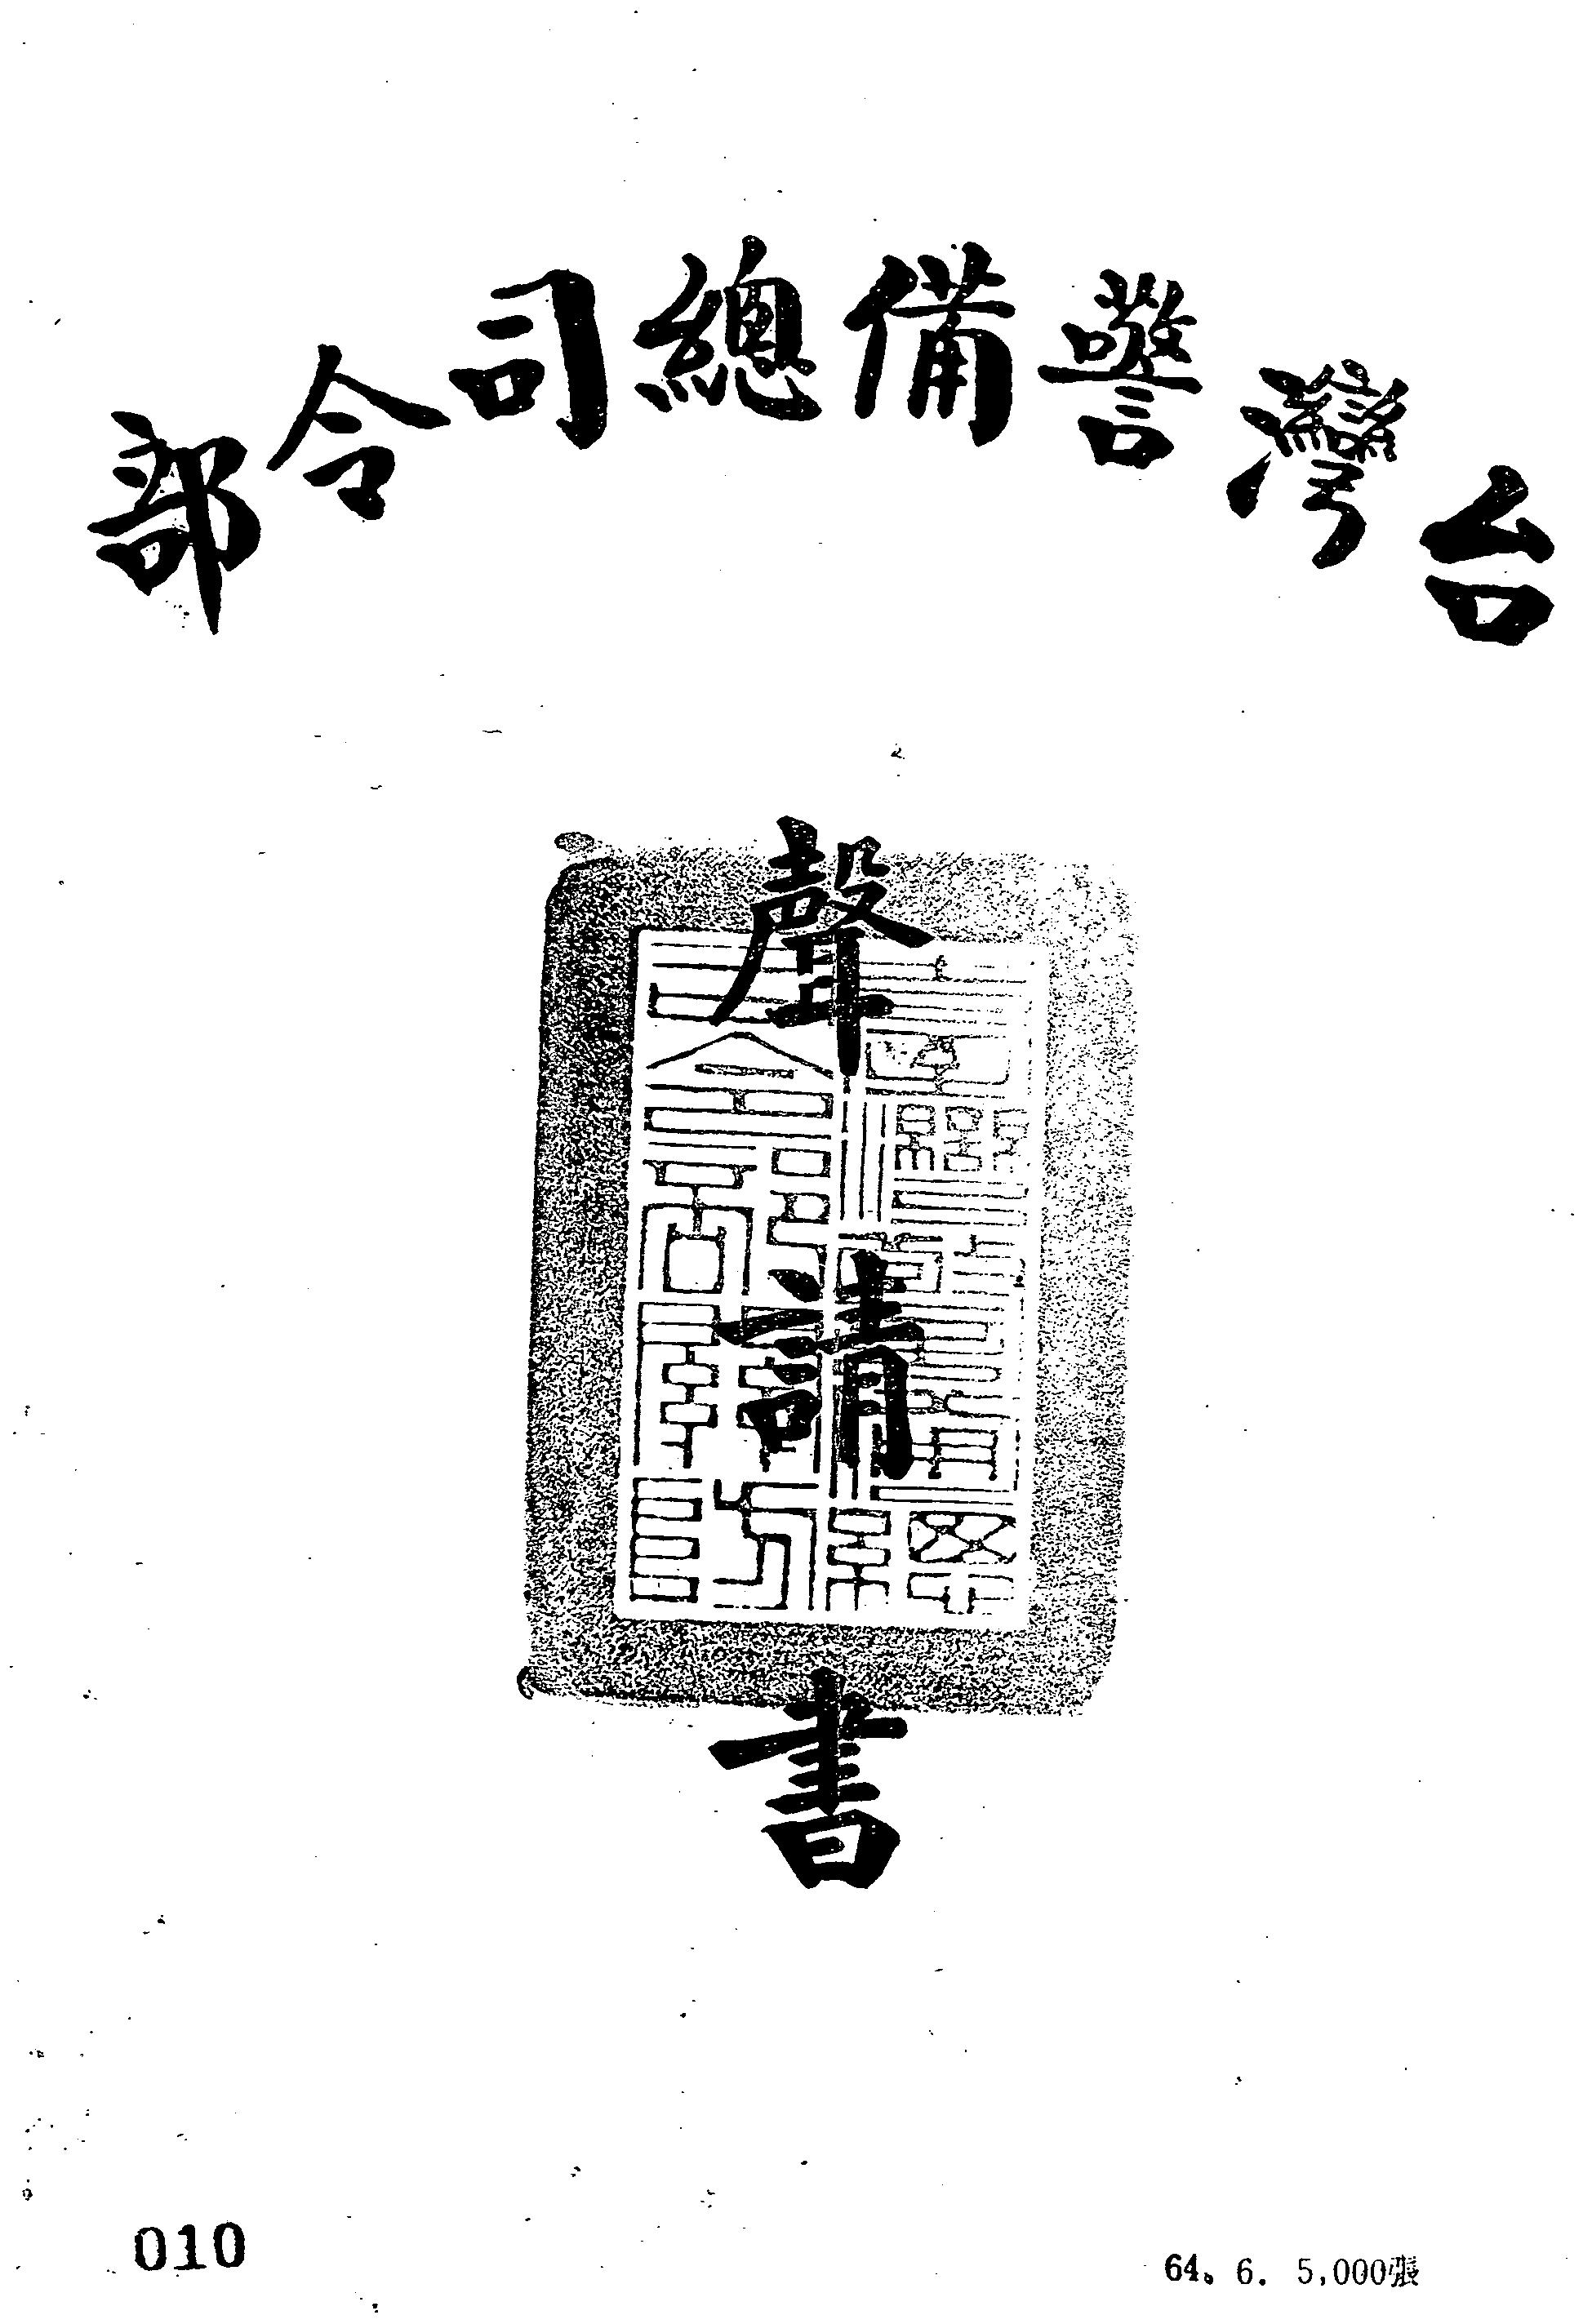 台灣警備總司令部
聲請書
010
64. 6. 5,000張